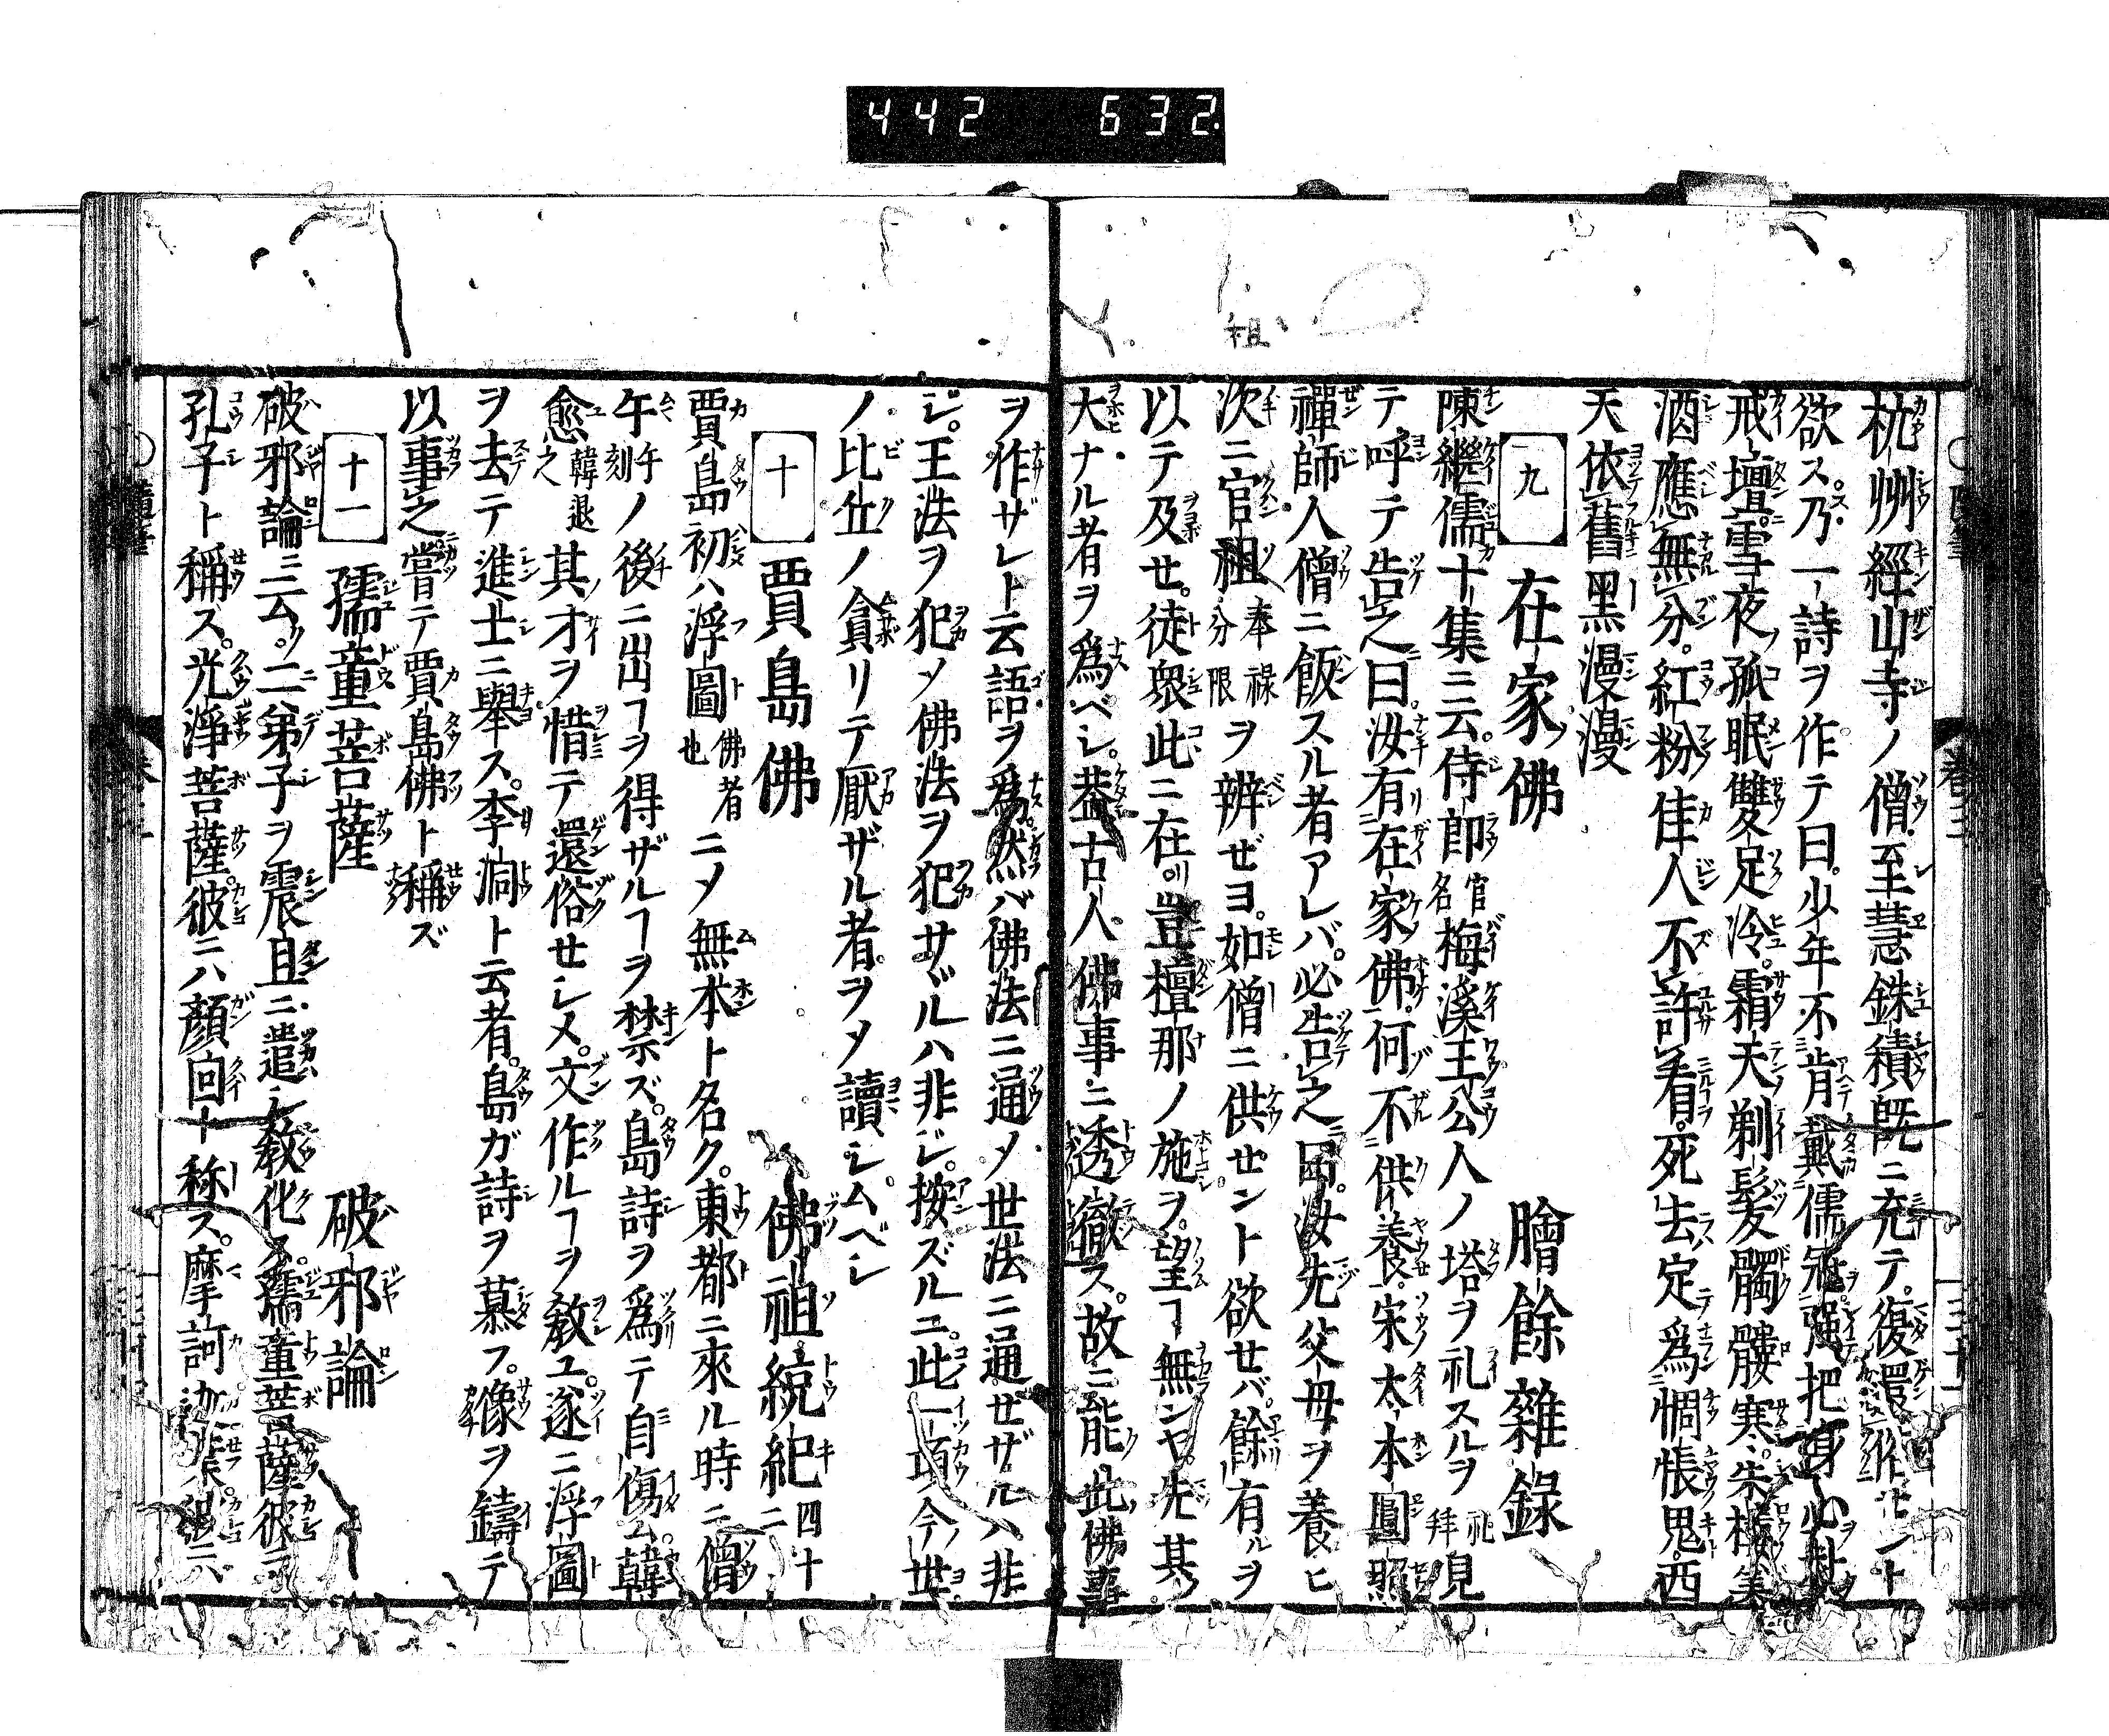 442 632.
祖
杭州經山寺ノ僧至慧銖積既ニ充テ。復還俗セント
欲ス。乃一詩ヲ作テ曰。少年不肯戴儒冠。强把身心
戒壇。雪夜孤眠雙足冷。霜天剃髮髑髏寒。朱樓美
酒應無分。紅粉佳人不許看。死去定爲惆悵鬼。西
天依舊黑漫漫
九 在家佛 膾餘雜錄
陳繼儒十集ニ云。侍郎官名梅溪王公人ノ塔ヲ礼スルヲ礼拜見
テ呼テ告之曰。汝有在家佛。何不供養。宋太本圓照
禪師人僧ニ飯スル者アレバ。必告之曰。汝先父母ヲ養ヒ
次ニ官祖奉祿分限ヲ辨ゼヨ。如僧ニ供セント欲セバ。餘有ルヲ
以テ及セ。徒衆此ニ在リ豈檀那ノ施ヲ望ヿ無ンヤ。先其
大ナル者ヲ爲ベシ。蓋古人佛事ニ透徹ス。故ニ能此佛事
ヲ作ザレト云語ヲ爲然バ佛法ニ通メ世法ニ通ゼザルハ非
シ。王法ヲ犯メ佛法ヲ犯サヾルハ非シ。按ズルニ。此一項今世
ノ比丘ノ貪リテ厭ザル者。ヲメ讀シムベシ
十 賈島佛 佛祖統紀四十二
賈島初ハ浮圖佛者也ニメ無本ト名ク。東都ニ來ル時ニ僧
午午刻ノ後ニ出ヿヲ得ザルヿヲ禁ズ。島詩ヲ爲テ自傷ム。韓
愈韓退之其才ヲ惜テ還俗セシメ。文作ルヿヲ敎ユ。遂ニ浮圖
ヲ去テ進士ニ擧ス。李洞ト云者。島ガ詩ヲ慕フ。像ヲ鑄テ
以事之嘗テ賈島佛ト稱ズ
十一 孺童菩薩 破邪論
破邪論ニ云。二弟子ヲ震旦ニ遣シ敎化ス。孺童菩薩彼ニ
孔子ト稱ス。光淨菩薩。彼ニハ顏回ト称ス。摩訶迦葉彼ニハ